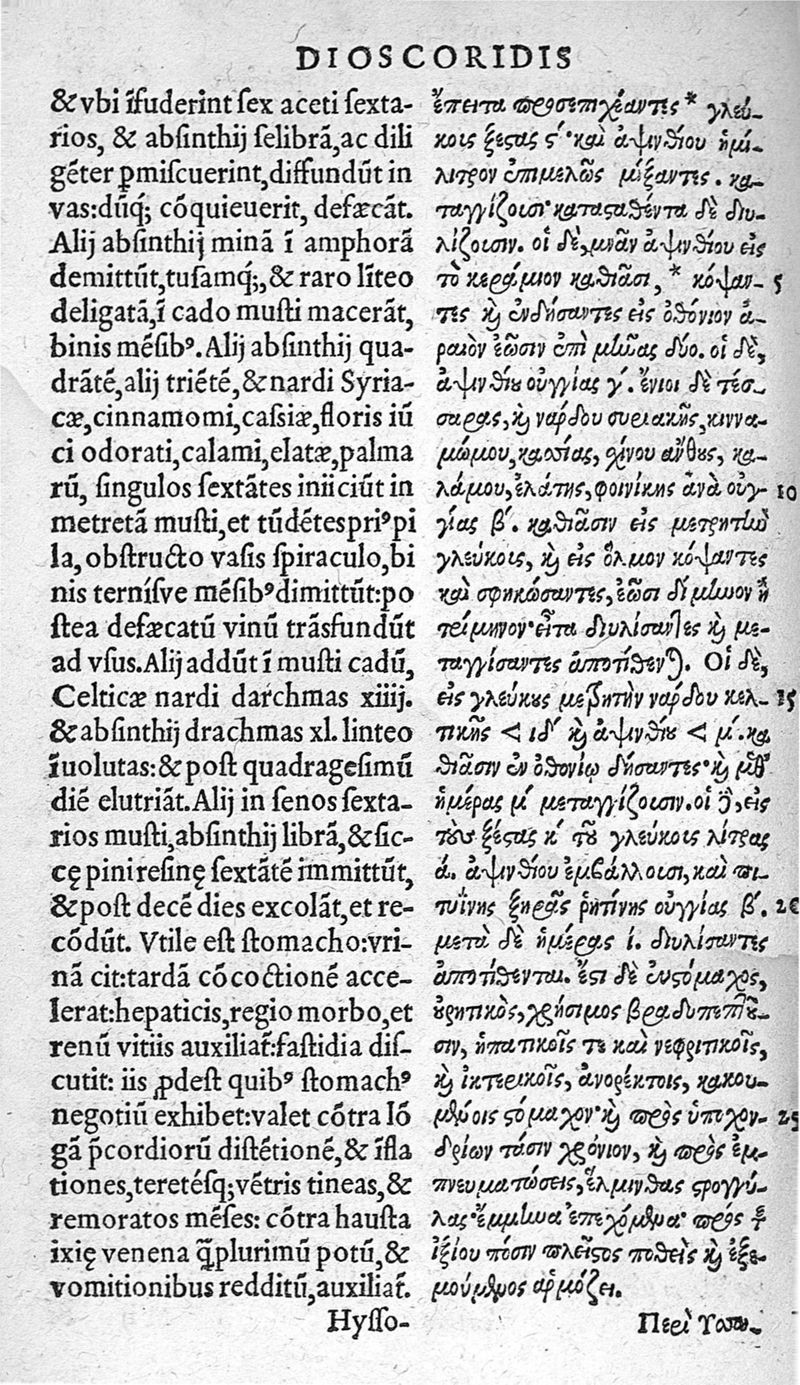 DIOSCORIDIS
& vbi ĩfuderint ſex aceti ſexta-
rios, & abſinthij ſelibrã, ac dili
gẽter ꝑmiſcuerint, diffundũt in
vas: dũq; cõquieuerit, defæcãt.
Alij abſinthij minã ĩ amphorã
demittũt, tuſamq;, & raro lĩteo
deligatã, ĩ cado muſti macerãt,
binis mẽſibꝰ. Alij abſinthij qua-
drãtẽ, alij triẽtẽ, & nardi Syria-
cæ, cinnamomi, caſsiæ, floris iũ
ci odorati, calami, elatæ, palma
rũ, ſingulos ſextãtes iniiciũt in
metretã muſti, et tũdẽtes priꝰ pi
la, obſtructo vaſis ſpiraculo, bi
nis terniſve mẽſibꝰ dimittũt: po
ſtea defæcatũ vinũ trãsfundũt
ad vſus. Alij addũt ĩ muſti cadũ,
Celticæ nardi darchmas xiiij.
& abſinthij drachmas xl. linteo
ĩuolutas: & poſt quadrageſimũ
diẽ elutriãt. Alij in ſenos ſexta-
rios muſti, abſinthij librã, & ſic-
cę pini reſinę ſextãtẽ immittũt,
& poſt decẽ dies excolãt, et re-
cõdũt. Vtile eſt ſtomacho: vri-
nã cit: tardã cõcoctionẽ acce-
lerat: hepaticis, regio morbo, et
renũ vitiis auxiliat̃: faſtidia diſ-
cutit: iis ꝓdeſt quibꝰ ſtomachꝰ
negotiũ exhibet: valet cõtra lõ
gã p̃cordiorũ diſtẽtionẽ, & ĩfla
tiones, tereteſq; vẽtris tineas, &
remoratos mẽſes: cõtra hauſta
ixię venena q̃plurimũ potũ, &
vomitionibus redditũ, auxiliat̃.
Hyſſo-
ἔπειτα προσεπιχέαντες * γλεύ-
κοις ξέϛας ϛ΄· καὶ ἀψινθίου ἡμί-
λιτρον ἐπιμελῶς μίξαντες. κα-
ταγγίζουσι· καταϛαθέντα δὲ διυ-
λίζουσιν. οἱ δὲ, μνᾶν ἀψινθίου εἰς
τὸ κεράμιον καθιᾶσι, * κόψαν- 5
τες ϗ ἐνδήσαντες εἰς ὀθόνιον ἀ-
ραιὸν ἐῶσιν ἐπὶ μῆνας δύο. οἱ δὲ,
ἀψινθίȣ οὐγγίας γ΄. ἔνιοι δὲ τέσ-
σαρας, ϗ νάρδου συριακῆς, κιννα-
μώμου, κασίας, σχίνου ἄνθȣς, κα-
λάμου, ἐλάτης, φοινίκης ἀνὰ οὐγ- 10
γίας β΄. καθιᾶσιν εἰς μετρητὴν
γλεύκοις, ϗ εἰς ὅλμον κόψαντες
καὶ σφηκώσαντες, ἐῶσι δίμηνον ἢ
τρίμηνον· εἶτα διυλίσαντες ϗ με-
ταγγίσαντες ἀποτίθενται. Οἱ δὲ,
εἰς γλεύκȣς μετρητὴν νάρδου κελ- 15
τικῆς < ιδ΄ ϗ ἀψινθίȣ < μ΄. κα
θιᾶσιν ἐν ὀθονίῳ δήσαντες· ϗ μεθ᾽
ἡμέρας μ΄ μεταγγίζουσιν. οἱ δὲ, εἰς
τοὺς ξέϛας κ΄ τοῦ γλεύκοις λίτρας
ά. ἀψινθίου ἐμβάλλουσι, καὶ πι-
τυΐνης ξηρᾶς ῥητίνης οὐγγίας β΄. 20
μετὰ δὲ ἡμέρας ι. διυλίσαντες
ἀποτίθενται. ἔϛι δὲ εὐϛόμαχος,
οὐρητικὸς, χρήσιμος βραδυπεπτοῦ-
σιν, ἡπατικοῖς τε καὶ νεφριτικοῖς,
ϗ ἰκτερικοῖς, ἀνορέκτοις, κακου-
μένοις ϛόμαχον· ϗ πρὸς ὑποχον- 25
δρίων τάσιν χρόνιον, ϗ πρὸς ἐμ-
πνευματώσεις, ἕλμινθας ϛρογγύ-
λας· ἔμμηνα ἐπεχόμενα· πρὸς τ̀
ἰξίου πόσιν πλεῖϛος ποθεὶς ϗ ἐξε-
μούμενος ἁρμόζει.
Περὶ Ὑσσω-